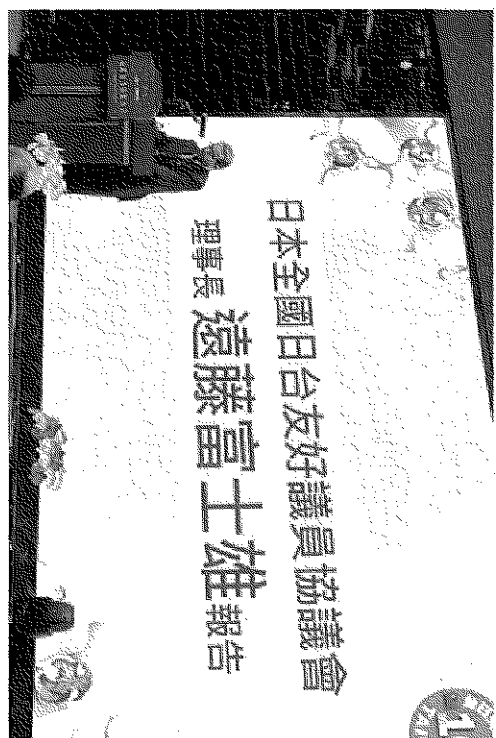 日本全國日台友好議員協議會
理事長 遠藤富士雄 報告